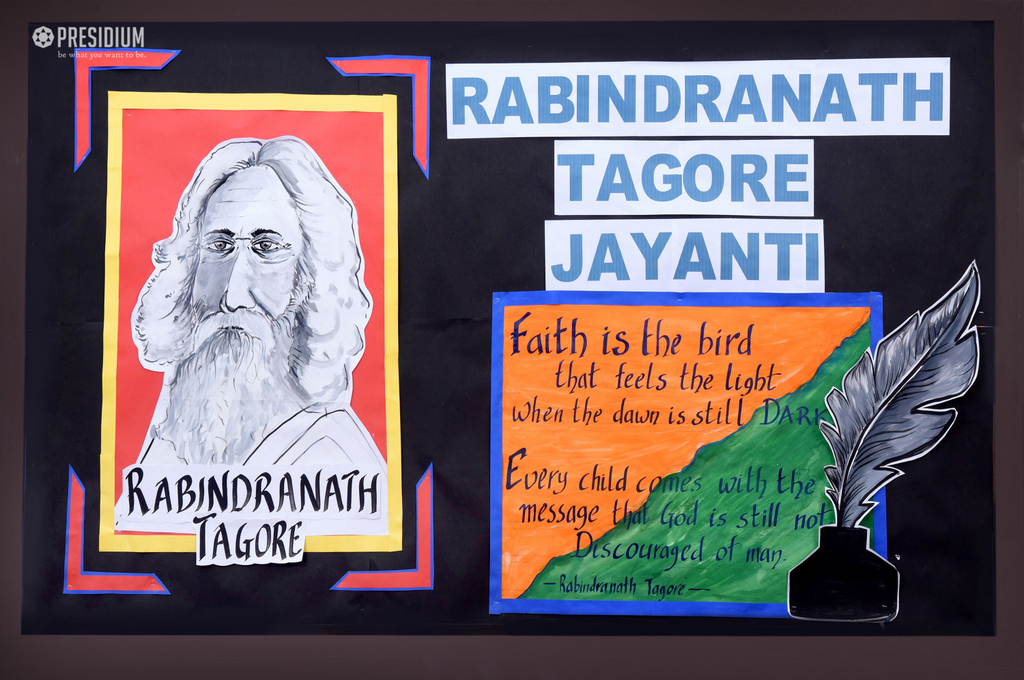 PRESIDIUM
be what you want to be.
RABINDRANATH
TAGORE
JAYANTI
RABINDRANATH
TAGORE
Faith is the bird
that feels the light
when the dawn is still DARK
Every child comes with the
message that God is still not
Discouraged of man.
— Rabindranath Tagore —